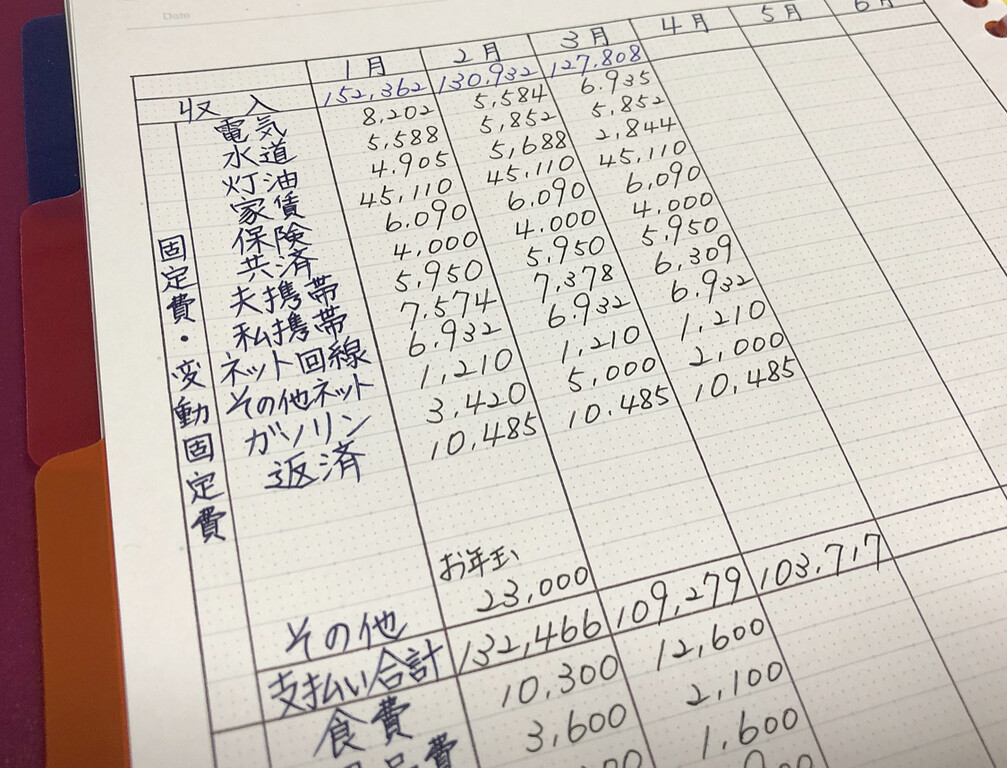 Date
1月 2月 3月 4月 5月 6月
収入 152,362 130,932 127,808
固定費・変動固定費
電気 8,202 5,584 6,935
水道 5,588 5,852 5,852
灯油 4,905 5,688 2,844
家賃 45,110 45,110 45,110
保険 6,090 6,090 6,090
共済 4,000 4,000 4,000
夫携帯 5,950 5,950 5,950
私携帯 7,574 7,378 6,309
ネット回線 6,932 6,932 6,932
その他ネット 1,210 1,210 1,210
ガソリン 3,420 5,000 2,000
返済 10,485 10,485 10,485
お年玉
その他 23,000
支払い合計 132,466 109,279 103,717
食費 10,300 12,600
3,600 2,100
1,600